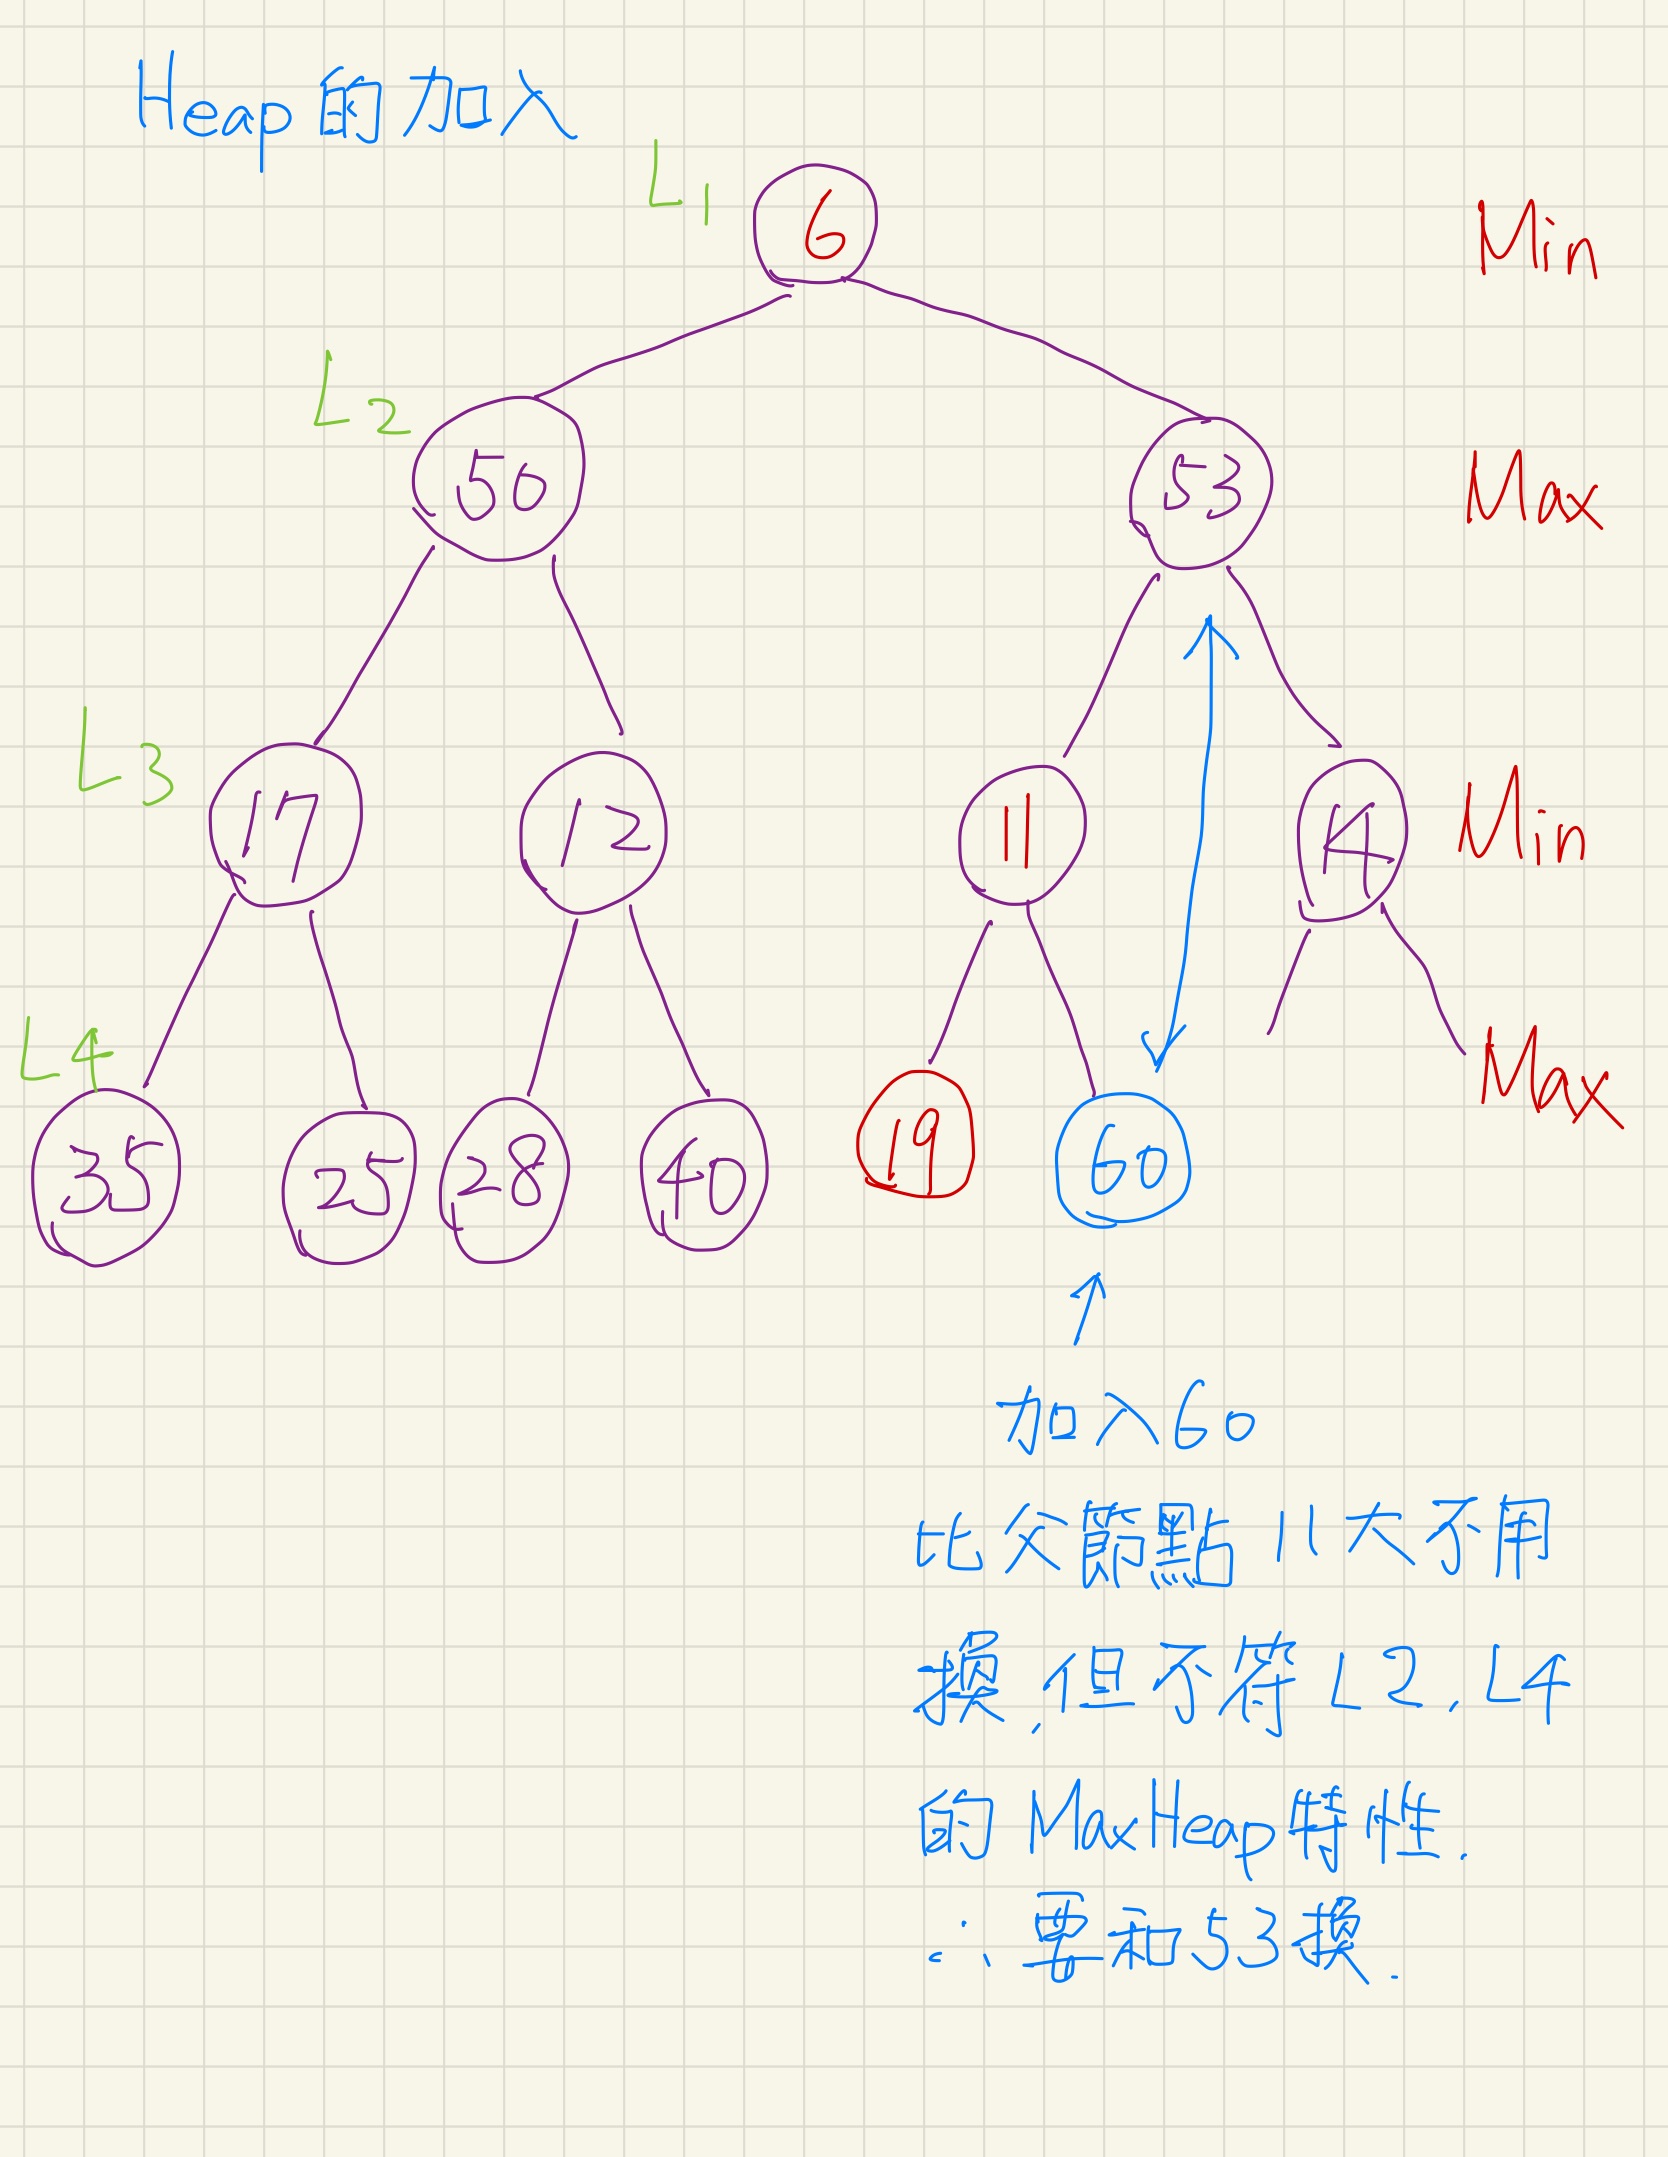 Heap的加入
L1
6
Min
L2
56
53
Max
L3
17
12
11
14
Min
L4
Max
35
25
28
40
19
60
加入60
比父節點11大不用
換,但不符L2.L4
的MaxHeap特性.
∴要和53換.